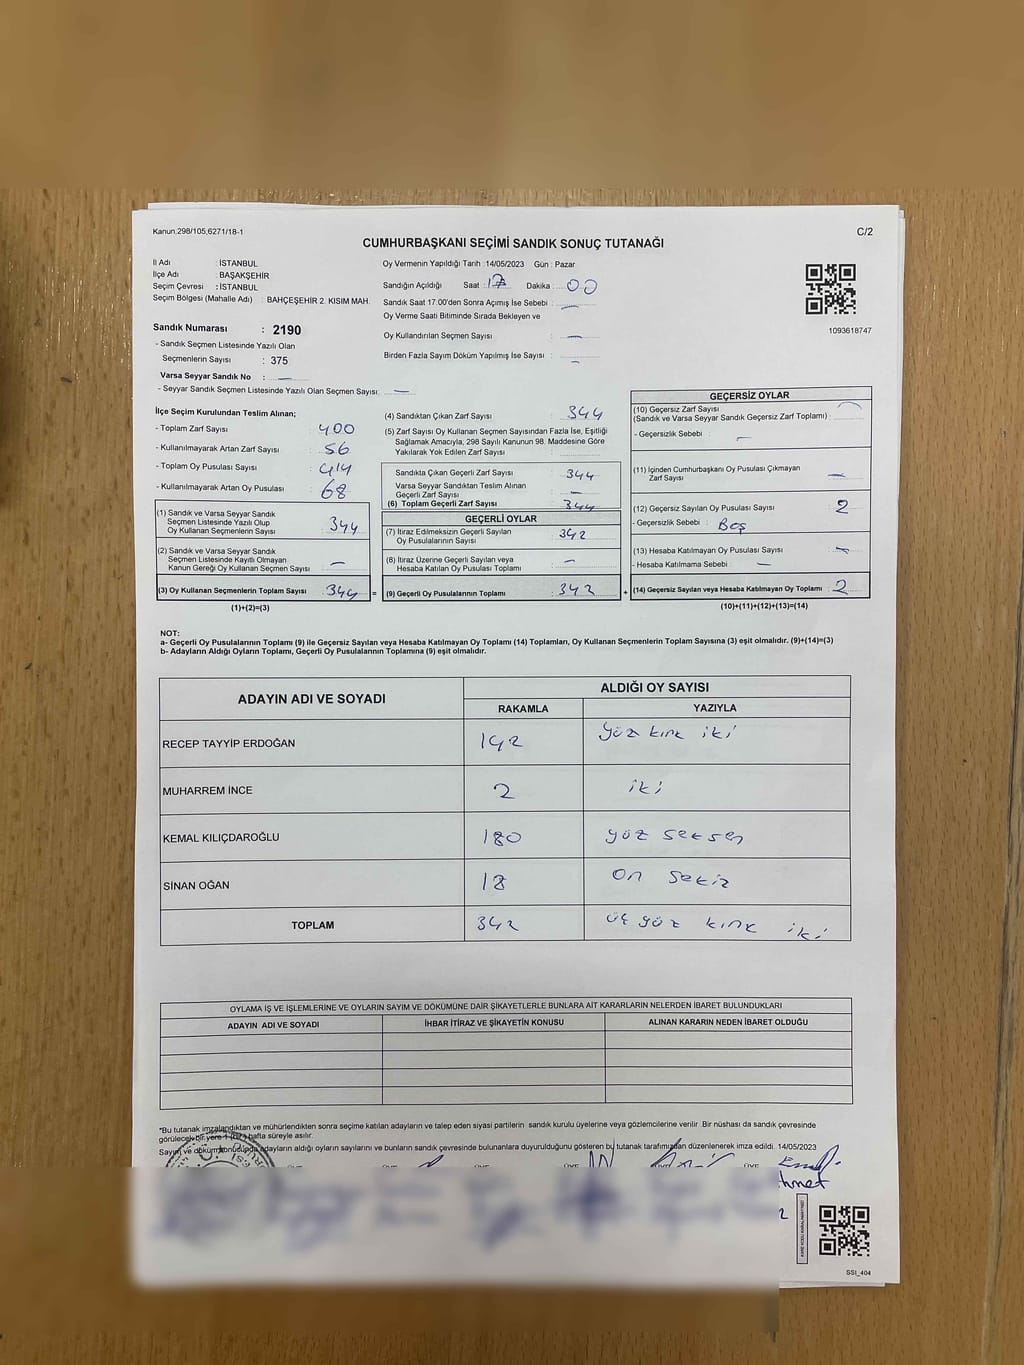 Kanun,298/105,6271/18-1
C/2
CUMHURBAŞKANI SEÇİMİ SANDIK SONUÇ TUTANAĞI
İl Adı : İSTANBUL
İlçe Adı : BAŞAKŞEHİR
Seçim Çevresi : İSTANBUL
Seçim Bölgesi (Mahalle Adı) : BAHÇEŞEHİR 2. KISIM MAH.
Oy Vermenin Yapıldığı Tarih :14/05/2023 Gün : Pazar
Sandığın Açıldığı Saat : 17 Dakika : 00
Sandık Saat 17.00'den Sonra Açımış İse Sebebi : —
Oy Verme Saati Bitiminde Sırada Bekleyen ve
Oy Kullandırılan Seçmen Sayısı : —
Birden Fazla Sayım Döküm Yapılmış İse Sayısı : —
1093618747
Sandık Numarası : 2190
- Sandık Seçmen Listesinde Yazılı Olan
Seçmenlerin Sayısı : 375
Varsa Seyyar Sandık No : —
- Seyyar Sandık Seçmen Listesinde Yazılı Olan Seçmen Sayısı : —
İlçe Seçim Kurulundan Teslim Alınan;
- Toplam Zarf Sayısı : 400
- Kullanılmayarak Artan Zarf Sayısı : 56
- Toplam Oy Pusulası Sayısı : 414
- Kullanılmayarak Artan Oy Pusulası : 68
(1) Sandık ve Varsa Seyyar Sandık
Seçmen Listesinde Yazılı Olup
Oy Kullanan Seçmenlerin Sayısı : 344
(2) Sandık ve Varsa Seyyar Sandık
Seçmen Listesinde Kayıtlı Olmayan
Kanun Gereği Oy Kullanan Seçmen Sayısı : —
(3) Oy Kullanan Seçmenlerin Toplam Sayısı : 344 =
(1)+(2)=(3)
(4) Sandıktan Çıkan Zarf Sayısı : 344
(5) Zarf Sayısı Oy Kullanan Seçmen Sayısından Fazla İse, Eşitliği
Sağlamak Amacıyla, 298 Sayılı Kanunun 98. Maddesine Göre
Yakılarak Yok Edilen Zarf Sayısı :
Sandıkta Çıkan Geçerli Zarf Sayısı : 344
Varsa Seyyar Sandıktan Teslim Alınan
Geçerli Zarf Sayısı : —
(6) Toplam Geçerli Zarf Sayısı : 344
GEÇERLİ OYLAR
(7) İtiraz Edilmeksizin Geçerli Sayılan
Oy Pusulalarının Sayısı : 342
(8) İtiraz Üzerine Geçerli Sayılan veya
Hesaba Katılan Oy Pusulası Toplamı : —
(9) Geçerli Oy Pusulalarının Toplamı : 342 +
GEÇERSİZ OYLAR
(10) Geçersiz Zarf Sayısı
(Sandık ve Varsa Seyyar Sandık Geçersiz Zarf Toplamı) : —
- Geçersizlik Sebebi : —
(11) İçinden Cumhurbaşkanı Oy Pusulası Çıkmayan
Zarf Sayısı : —
(12) Geçersiz Sayılan Oy Pusulası Sayısı : 2
- Geçersizlik Sebebi : Boş
(13) Hesaba Katılmayan Oy Pusulası Sayısı : —
- Hesaba Katılmama Sebebi : —
(14) Geçersiz Sayılan veya Hesaba Katılmayan Oy Toplamı : 2
(10)+(11)+(12)+(13)=(14)
NOT:
a- Geçerli Oy Pusulalarının Toplamı (9) ile Geçersiz Sayılan veya Hesaba Katılmayan Oy Toplamı (14) Toplamları, Oy Kullanan Seçmenlerin Toplam Sayısına (3) eşit olmalıdır. (9)+(14)=(3)
b- Adayların Aldığı Oyların Toplamı, Geçerli Oy Pusulalarının Toplamına (9) eşit olmalıdır.
ADAYIN ADI VE SOYADI
ALDIĞI OY SAYISI
RAKAMLA YAZIYLA
RECEP TAYYİP ERDOĞAN 142 yüz kırk iki
MUHARREM İNCE 2 iki
KEMAL KILIÇDAROĞLU 180 yüz seksen
SİNAN OĞAN 18 on sekiz
TOPLAM 342 üç yüz kırk iki
OYLAMA İŞ VE İŞLEMLERİNE VE OYLARIN SAYIM VE DÖKÜMÜNE DAİR ŞİKAYETLERLE BUNLARA AİT KARARLARIN NELERDEN İBARET BULUNDUKLARI
ADAYIN ADI VE SOYADI İHBAR İTİRAZ VE ŞİKAYETİN KONUSU ALINAN KARARIN NEDEN İBARET OLDUĞU
*Bu tutanak imzalandıktan ve mühürlendikten sonra seçime katılan adayların ve talep eden siyasi partilerin sandık kurulu üyelerine veya gözlemcilerine verilir. Bir nüshası da sandık çevresinde
görülecek bir yere 1 (bir) hafta süreyle asılır.
Sayım ve döküm sonucunda adayların aldığı oyların sayılarını ve bunların sandık çevresinde bulunanlara duyurulduğunu gösteren bu tutanak tarafımızdan düzenlenerek imza edildi. 14/05/2023
SSI_404